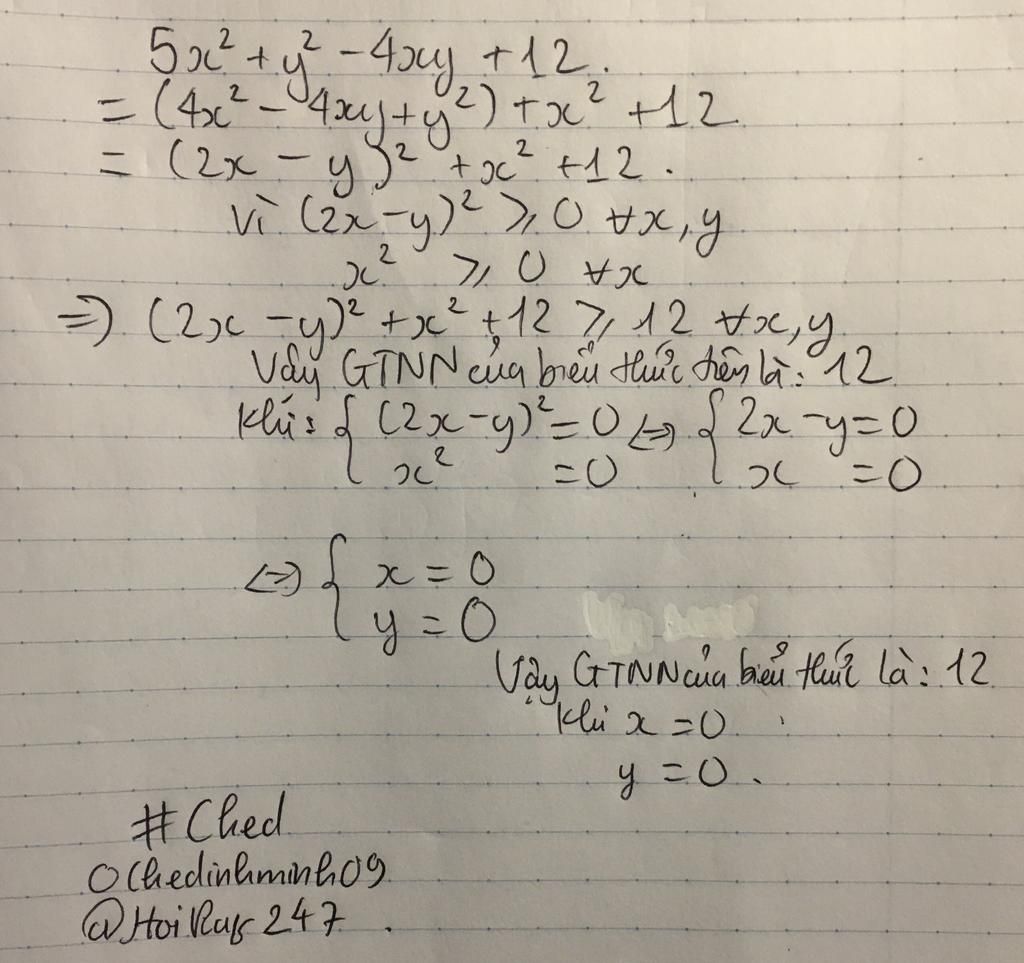 5x² + y² - 4xy + 12.
= (4x² - 4xy + y²) + x² + 12
= (2x - y)² + x² + 12.
Vì (2x - y)² ⩾ 0 ∀x, y
x² ⩾ 0 ∀x
=> (2x - y)² + x² + 12 ⩾ 12 ∀x, y
Vậy GTNN của biểu thức trên là: 12
Khi: { (2x - y)² = 0 <=> { 2x - y = 0
x² = 0 x = 0
<=> { x = 0
y = 0
Vậy GTNN của biểu thức là: 12
Khi x = 0
y = 0.
#Ched
Chedinhminh09
@Hoi 247